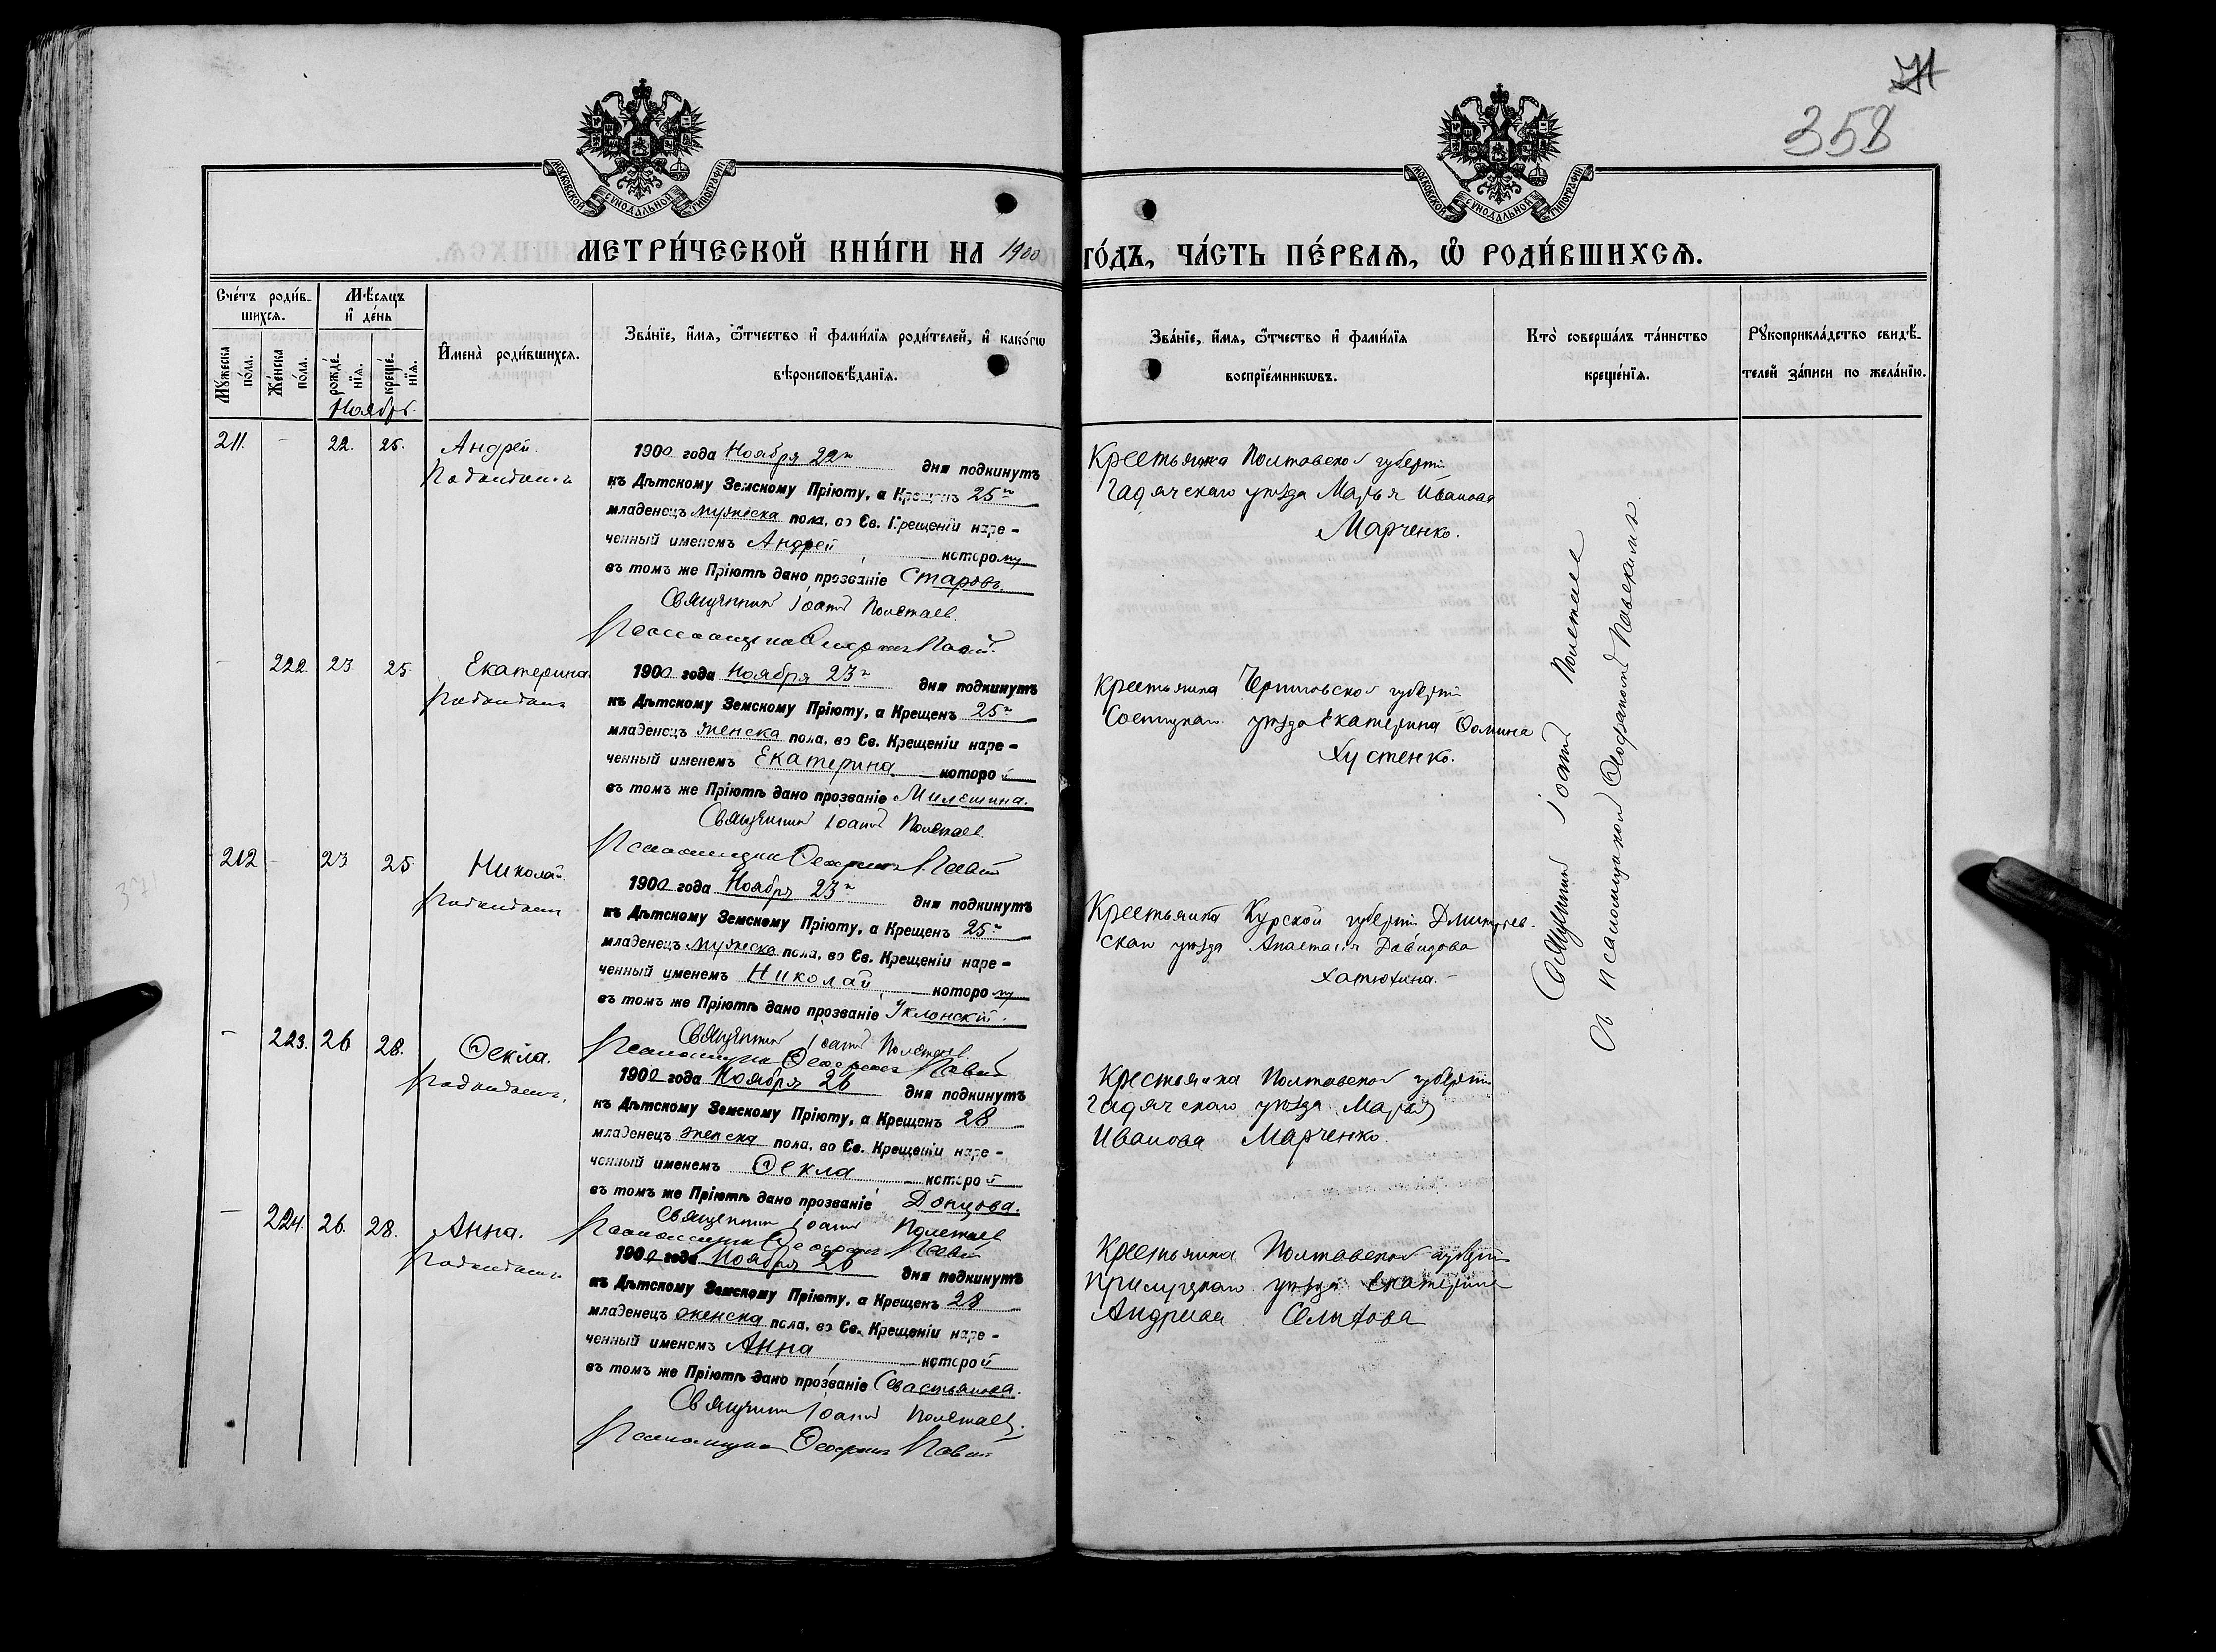 71
358
МОСКОВСКОЙ СѴНОДАЛЬНОЙ ТИПОГРАФІИ
МОСКОВСКОЙ СѴНОДАЛЬНОЙ ТИПОГРАФІИ
МЕТРИ́ЧЕСКОЙ КНИ́ГИ НА 1900 ГО́ДЪ, ЧА́СТЬ ПЕ́РВАѦ, Ѽ РОДИ́ВШИХСѦ.
Сче́тъ роди́в-
шихсѧ.
Мꙋ́жеска по́ла.
Же́нска по́ла.
Мѣ́сѧцъ и҆ де́нь
рожде́-нїѧ.
креще́-нїѧ.
Ноябрь.
И҆мена̀ роди́вшихсѧ.
Зва́нїе, и҆́мѧ, ѻ҆́тчество и҆ фами́лїѧ роди́телей, и҆ како́гѡ
вѣроисповѣ́данїѧ.
Зва́нїе, и҆́мѧ, ѻ҆́тчество и҆ фами́лїѧ
воспрїе́мникѡвъ.
Кто̀ соверша́лъ та́инство
креще́нїѧ.
Рꙋкоприкла́дство свидѣ́-
телей за́писи по жела́нїю.
211. - 22. 25. Андрей.
1900 года Ноября 22го дня подкинутъ
къ Дѣтскому Земскому Пріюту, а Крещенъ 25го
младенецъ мужеска пола, во Св. Крещеніи наре-
ченный именемъ Андрей которому
въ томъ же Пріютѣ дано прозваніе Старовъ.
Священникъ Іоаннъ Полетаев.
Крестьянка Полтавской губерніи
Гадячскаго уѣзда Марья Иванова
Марченко.
- 222 23 25. Екатерина
1900 года Ноября 23го дня подкинутъ
къ Дѣтскому Земскому Пріюту, а Крещенъ 25го
младенецъ женска пола, во Св. Крещеніи наре-
ченный именемъ Екатерина которой
въ томъ же Пріютѣ дано прозваніе Милешина.
Священникъ Іоаннъ Полетаев.
Крестьянка Черниговской губерніи
уѣзда Екатерина Ѳомина
Хустенко.
212 - 23 25 Николай.
1900 года Ноября 23го дня подкинутъ
къ Дѣтскому Земскому Пріюту, а Крещенъ 25го
младенецъ мужеска пола, во Св. Крещеніи наре-
ченный именемъ Николай которому
въ томъ же Пріютѣ дано прозваніе Уклонскій.
Священникъ Іоаннъ Полетаев.
Крестьянка Курской губерніи Дмитріев-
скаго уѣзда Анастасія Давидова
Хатюхина.
- 223. 26 28. Ѳекла.
1900 года Ноября 26 дня подкинутъ
къ Дѣтскому Земскому Пріюту, а Крещенъ 28
младенецъ женска пола, во Св. Крещеніи наре-
ченный именемъ Ѳекла которой
въ томъ же Пріютѣ дано прозваніе Донцова.
Священникъ Іоаннъ Полетаев
Крестьянка Полтавской губерніи
Гадячскаго уѣзда Марья
Иванова Марченко.
- 224. 26. 28. Анна.
1900 года Ноября 26 дня подкинутъ
къ Дѣтскому Земскому Пріюту, а Крещенъ 28
младенецъ женска пола, во Св. Крещеніи наре-
ченный именемъ Анна которой
въ томъ же Пріютѣ дано прозваніе Севастьянова.
Священникъ Іоаннъ Полетаев.
Крестьянка Полтавской губерніи
Прилуцкаго уѣзда Екатерина
Андреева Селихова
Священникъ Іоаннъ Полетаев
Съ псаломщикомъ Ѳеофаномъ